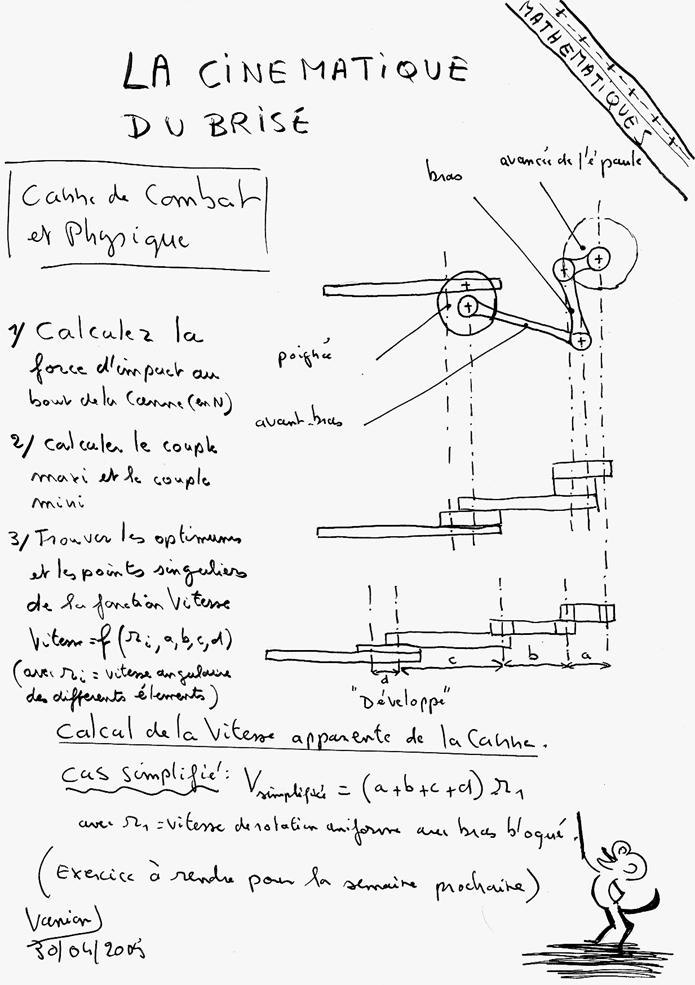 LA CINEMATIQUE
DU BRISÉ
MATHEMATIQUES
Canne de Combat
et Physique
avancée de l'épaule
bras
poignée
avant-bras
1/ Calculez la
force d'impact au
bout de la Canne (en N)
2/ Calculer le couple
maxi et le couple
mini
3/ Trouver les optimums
et les points singuliers
de la fonction Vitesse
Vitesse = f (r i, a, b, c, d)
(avec r i = vitesse angulaire
des differents éléments)
d c b a
"Développé"
Calcul de la Vitesse apparente de la Canne.
Cas simplifié : V simplifiée = (a+b+c+d) r 1
avec r 1 = vitesse de rotation uniforme avec bras bloqué.
(Exercice à rendre pour la semaine prochaine)
30/04/2005